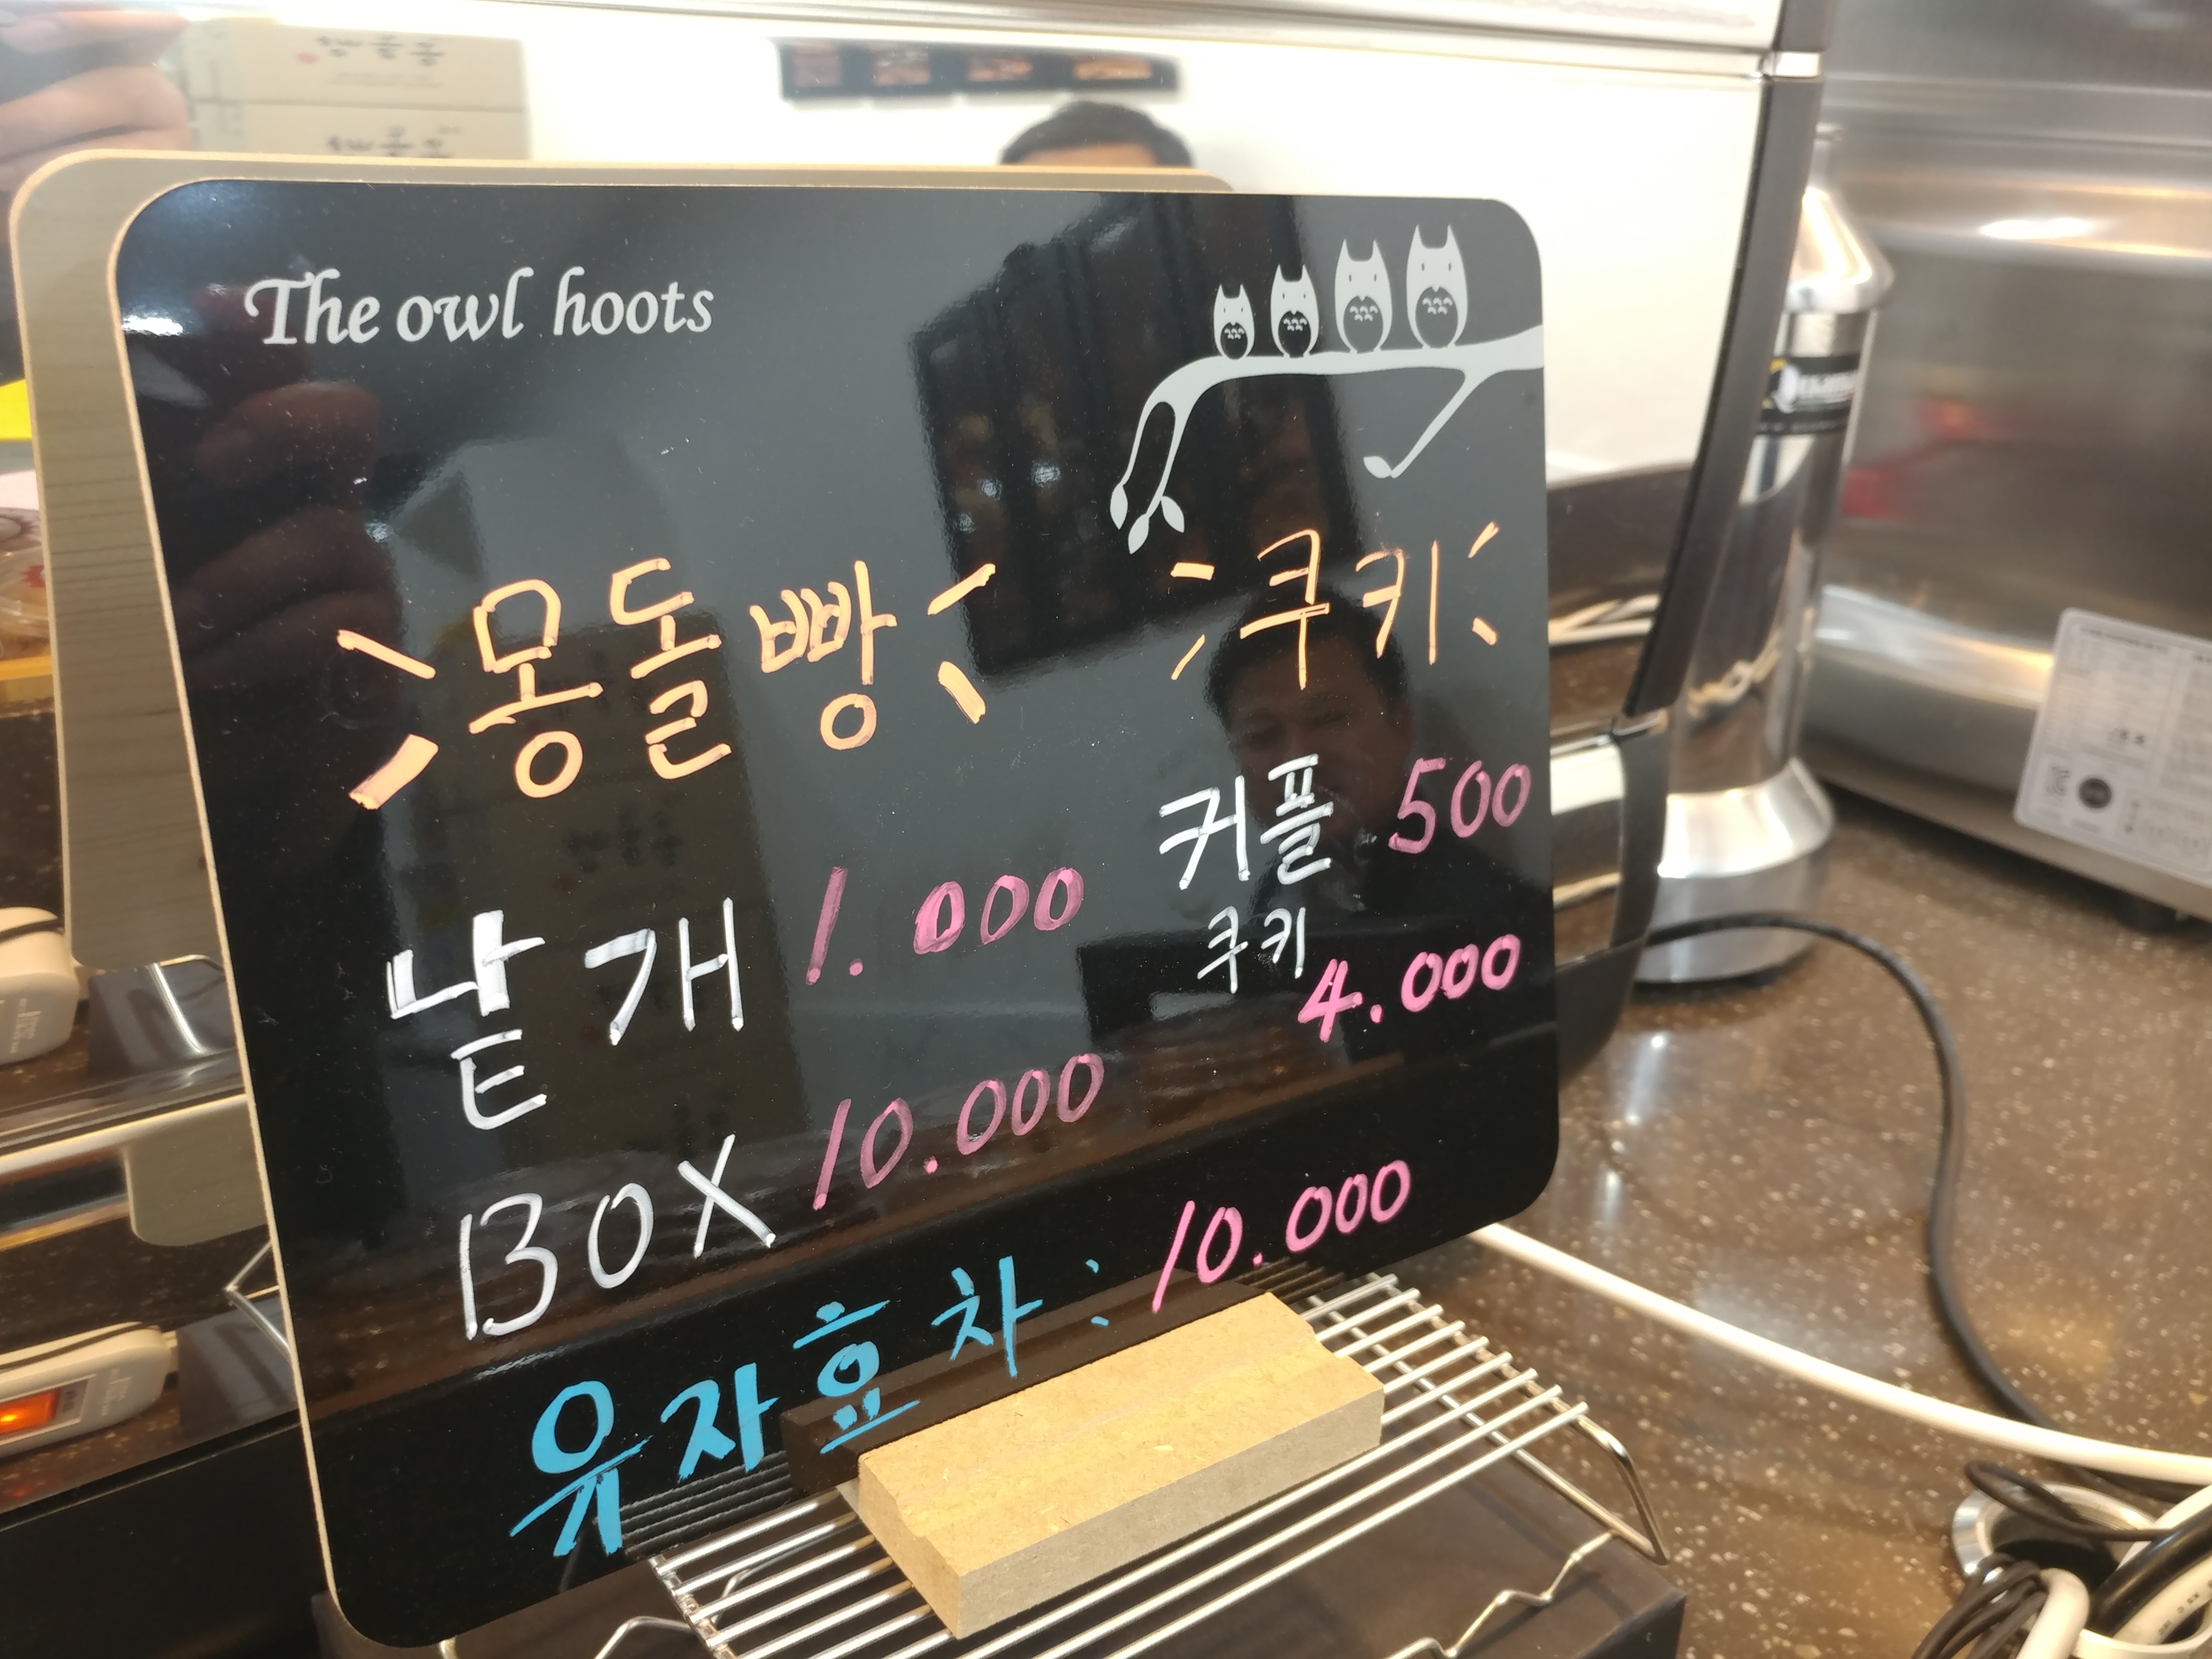 The owl hoots
몽돌빵
낱개 1.000
BOX 10.000
쿠키
커플 500
쿠키 4.000
유자효차 : 10.000